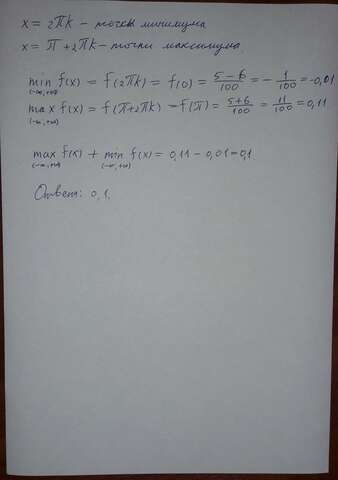 x = 2πk – точки минимума
x = π + 2πk – точки максимума
min f(x) = f(2πk) = f(0) = (5-6)/100 = -1/100 = -0,01
(-∞; +∞)
max f(x) = f(π+2πk) = f(π) = (5+6)/100 = 11/100 = 0,11
(-∞; +∞)
max f(x) + min f(x) = 0,11 - 0,01 = 0,1
(-∞; +∞) (-∞; +∞)
Ответ: 0,1.